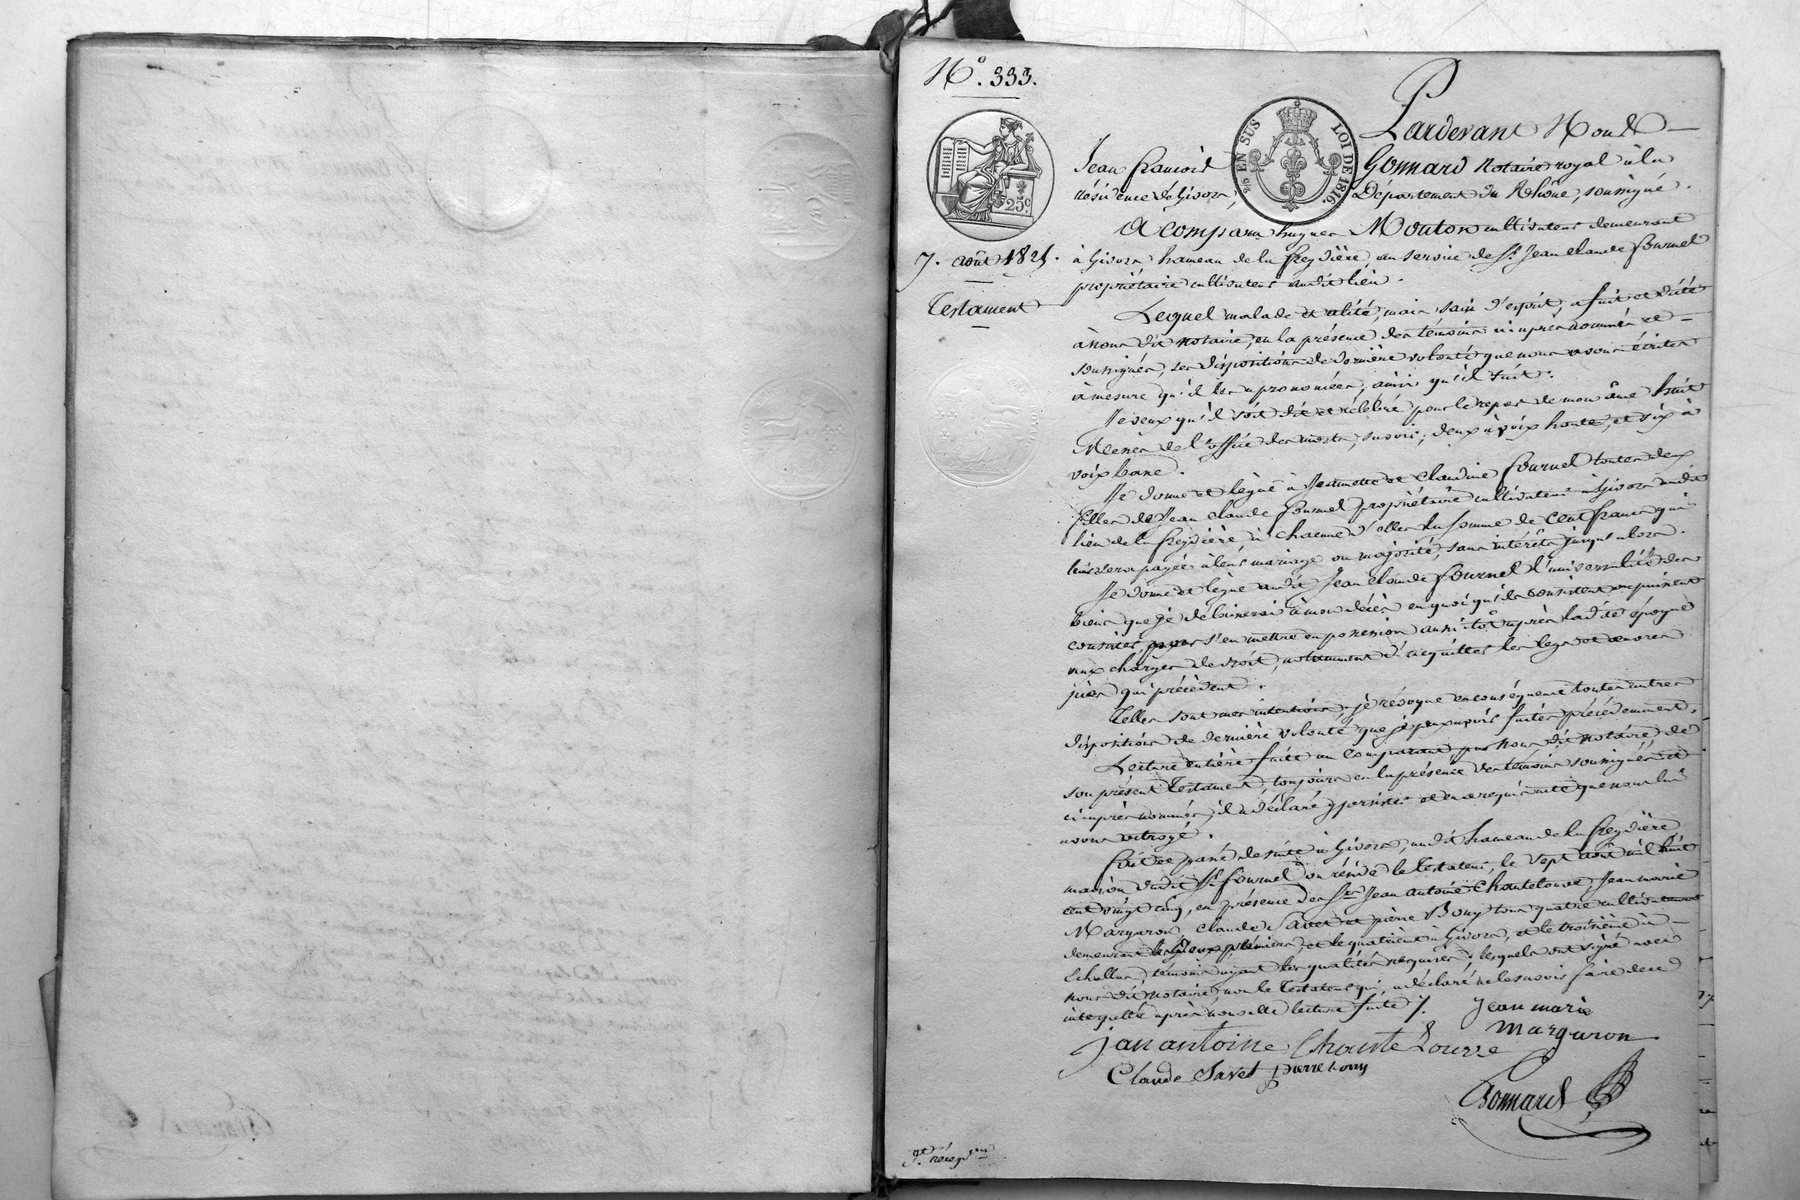 N.° 333.
7. août 1825.
Testament
25c
25c EN SUS LOI DE 1816.
Pardevant Nous
Jean François Gonnard Notaire royal à la
résidence de Givors, Département du Rhône, soussigné.
A comparu hugues Mouton cultivateur demeurant
à Givors hameau de la freydière, au service de Sr. Jean claude fournel
propriétaire cultivateur audit lieu.
Lequel malade et alité, mais sain d'esprit, a fait et dicté
à nous dit notaire, en la présence des témoins ci après nommés et
soussignés, ses dispositions de dernière volonté que nous avons écrites
à mesure qu'il les a prononcées, ainsi qu'il suit.
Je veux qu'il soit dit et célébré pour le repos de mon âme huit
Messes de l'office des morts, savoir; deux à voix haute, et six à
voix basse.
Je donne et lègue à Jeannette et Claudine fournel toutes deux
filles de Jean claude fournel propriétaire cultivateur à Givors audit
lieu de la freydière à chacune d'elles la somme de cent francs qui
leur sera payée à leur mariage ou majorité, sans intérêts jusqu'alors.
Je donne et lègue audit Jean claude fournel l'universalité des
biens que je délaisserai à mon décès en quoi qu'ils consistent ou puissent
consister, pour s'en mettre en possession aussi-tôt après ladite époque
aux charges de droit, notamment d'acquitter les legs et œuvres
pies qui précèdent.
Telles sont mes intentions, je révoque en conséquence toutes autres
dispositions de dernière volonté que je peux avoir faites précédemment.
Lecture entière faite au comparant par nous dit notaire de
son présent Testament, toujours en la présence des témoins soussignés et
ci après nommés, il a déclaré y persister et en a requis acte que nous lui
avons octroyé.
fait et passé de suite à Givors, audit hameau de la freydière
maison dudit Sr. fournel où réside le Testateur, le sept août mil huit
cent vingt cinq, en présence des Srs. Jean antoine Chantelouve, Jean marie
Margaron, Claude Savet et pierre Bony tous quatre cultivateurs
demeurant les deux premiers et le quatrième à Givors, et le troisième à
Echallas, témoins ayant les qualités requises; lesquels ont signé avec
nous dit notaire, non le Testateur qui a déclaré ne le savoir faire de ce
interpellé après nouvelle lecture faite /.
jean marie
margaron
jan antoine Chante Louve
Claude Savet pierre bony
Gonnard